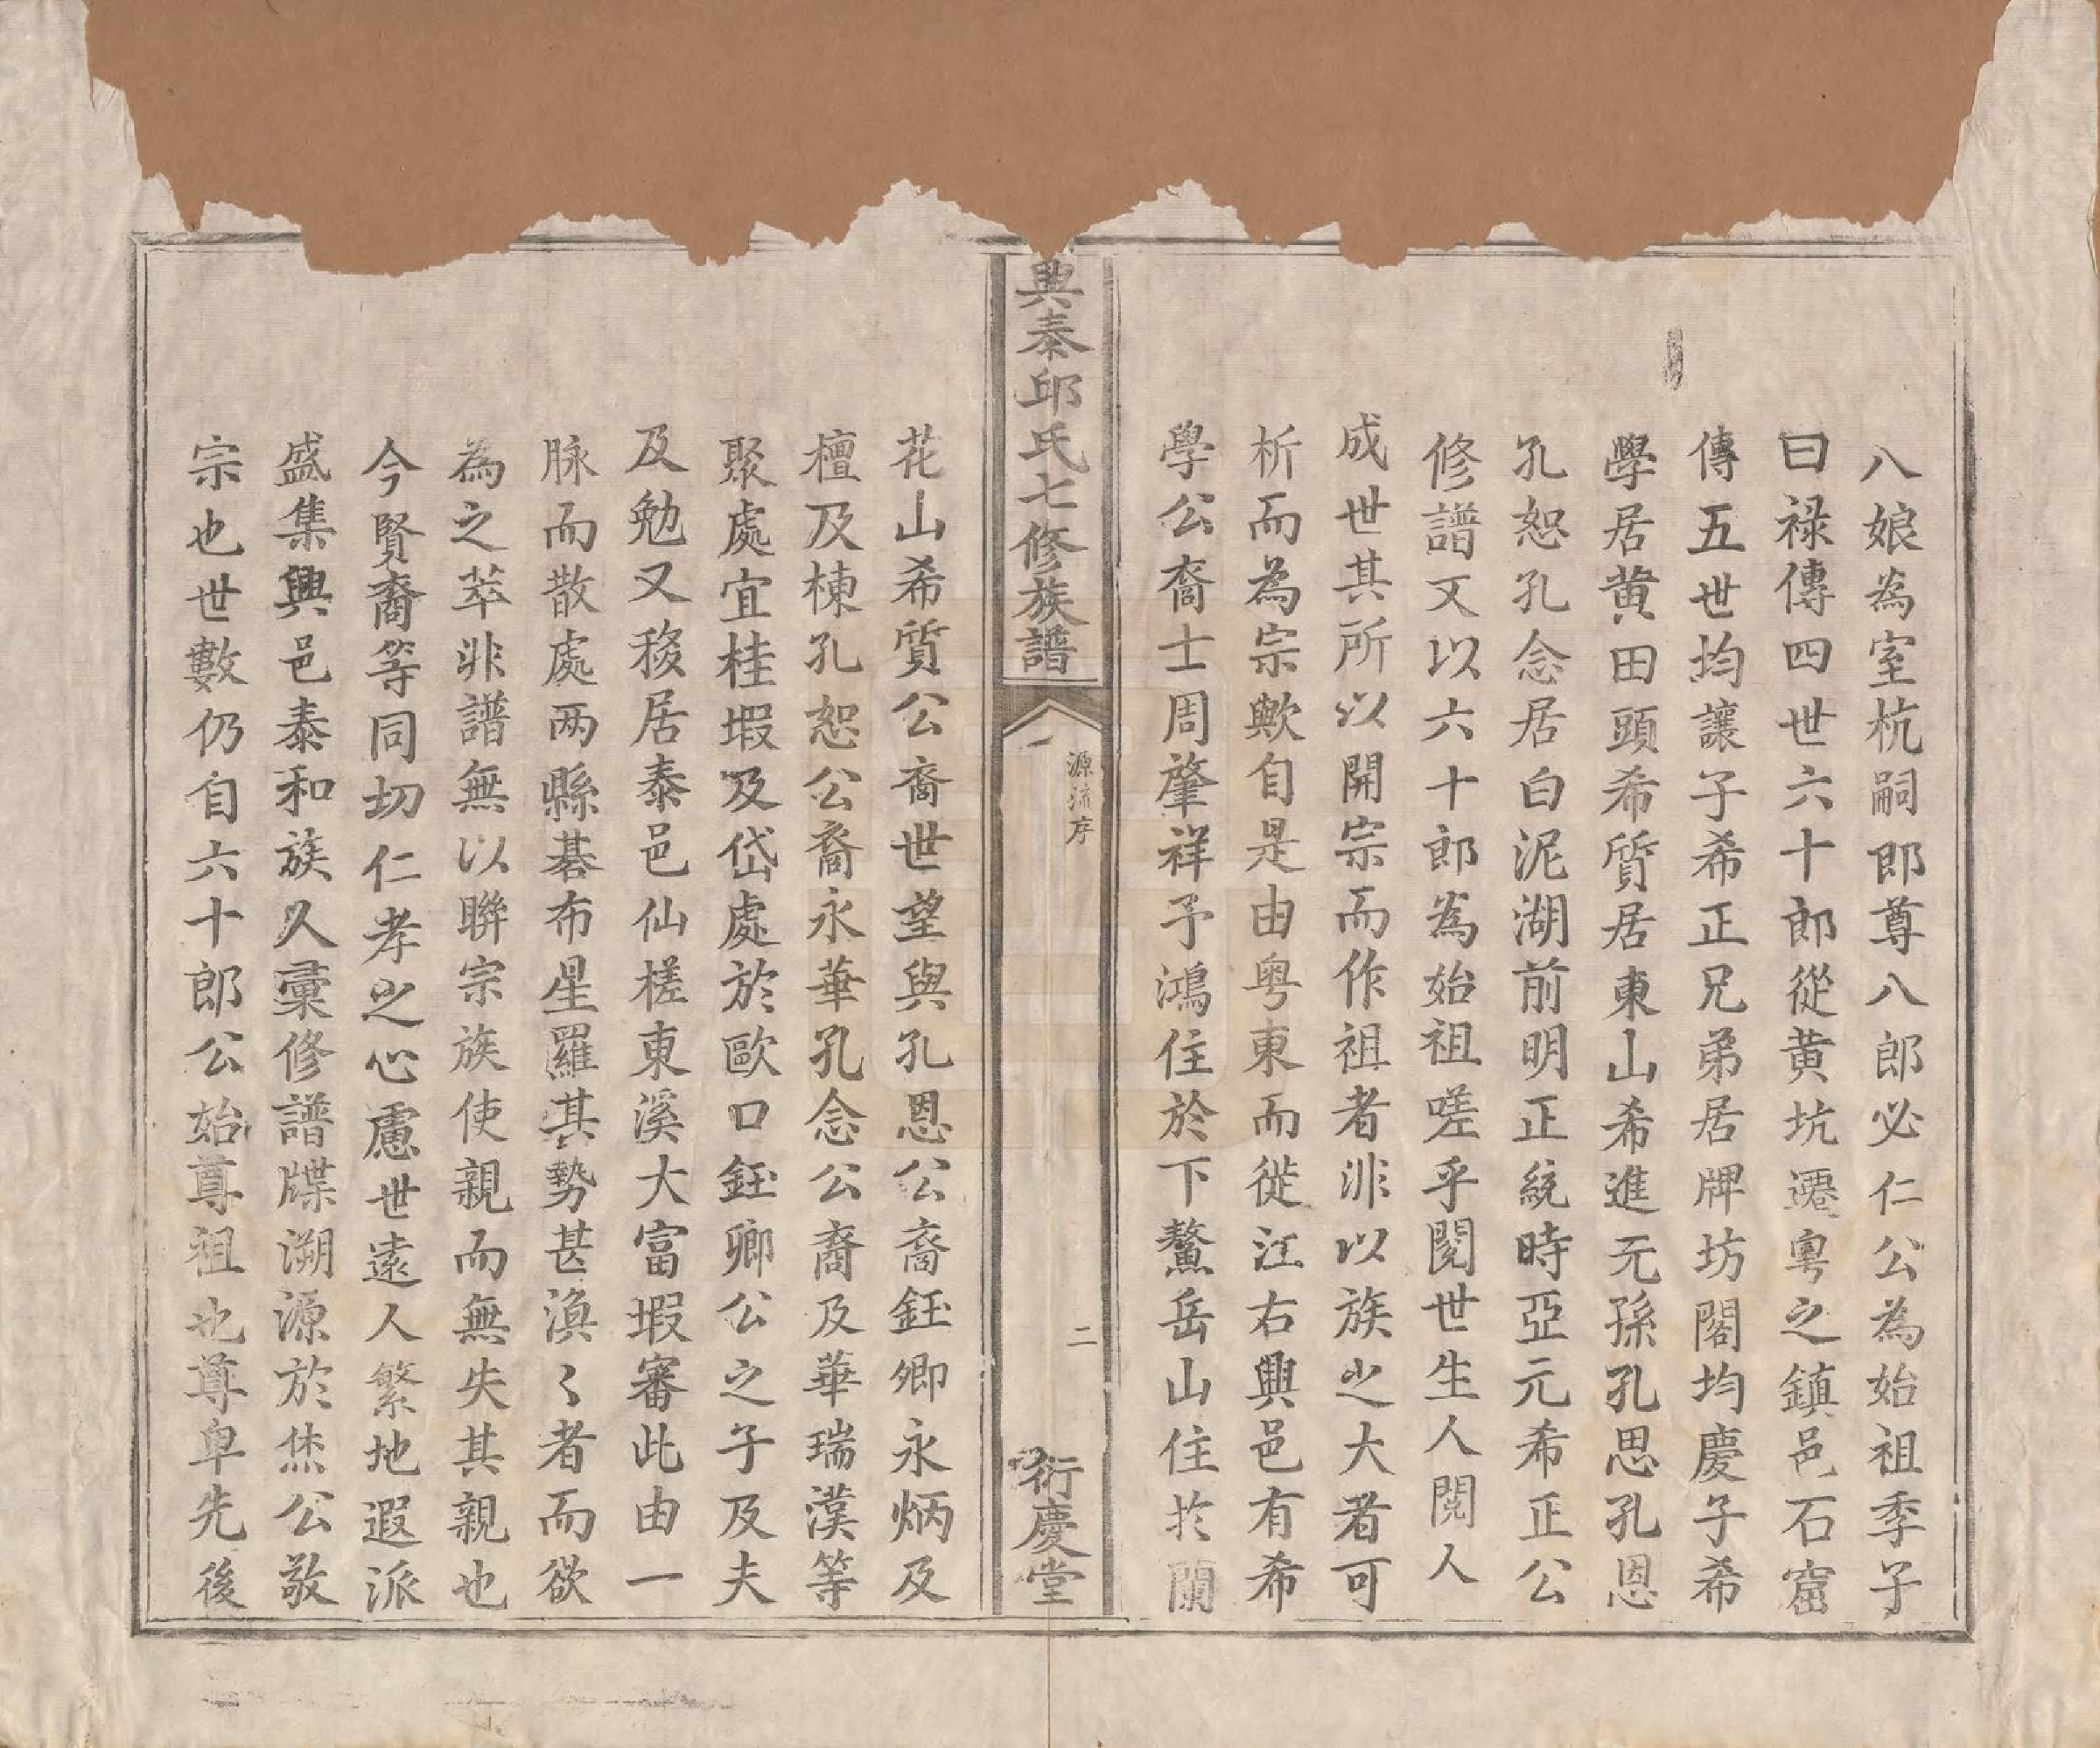 八娘為室杭嗣郎尊八郎必仁公為始祖季子
曰祿傳四世六十郎從黄坑遷粤之鎮邑石窟
傳五世均讓子希正兄弟居牌坊閣均慶子希
學居黄田頭希質居東山希進元孫孔思孔恩
孔恕孔念居白泥湖前明正統時亞元希正公
修譜又以六十郎為始祖嗟乎閱世生人閱人
成世其所以開宗而作祖者非以族之大者可
析而為宗歟自是由粤東而徙江右興邑有希
學公裔士周肇祥予鴻住於下鰲岳山住於蘭
興泰邱氏七修族譜
源流序
二
衍慶堂
花山希質公裔世望與孔恩公裔鈺卿永炳及
檀及棟孔恕公裔永華孔念公裔及華瑞漢等
聚處宜桂塅及岱處於歐口鈺卿公之子及夫
及勉又移居泰邑仙槎東溪大富塅審此由一
脉而散處两縣碁布星羅其勢甚渙〻者而欲
為之萃非譜無以聯宗族使親而無失其親也
今賢裔等同切仁孝之心慮世遠人繁地遐派
盛集興邑泰和族人彙修譜牒溯源於烋公敬
宗也世數仍自六十郎公始尊祖也尊卑先後